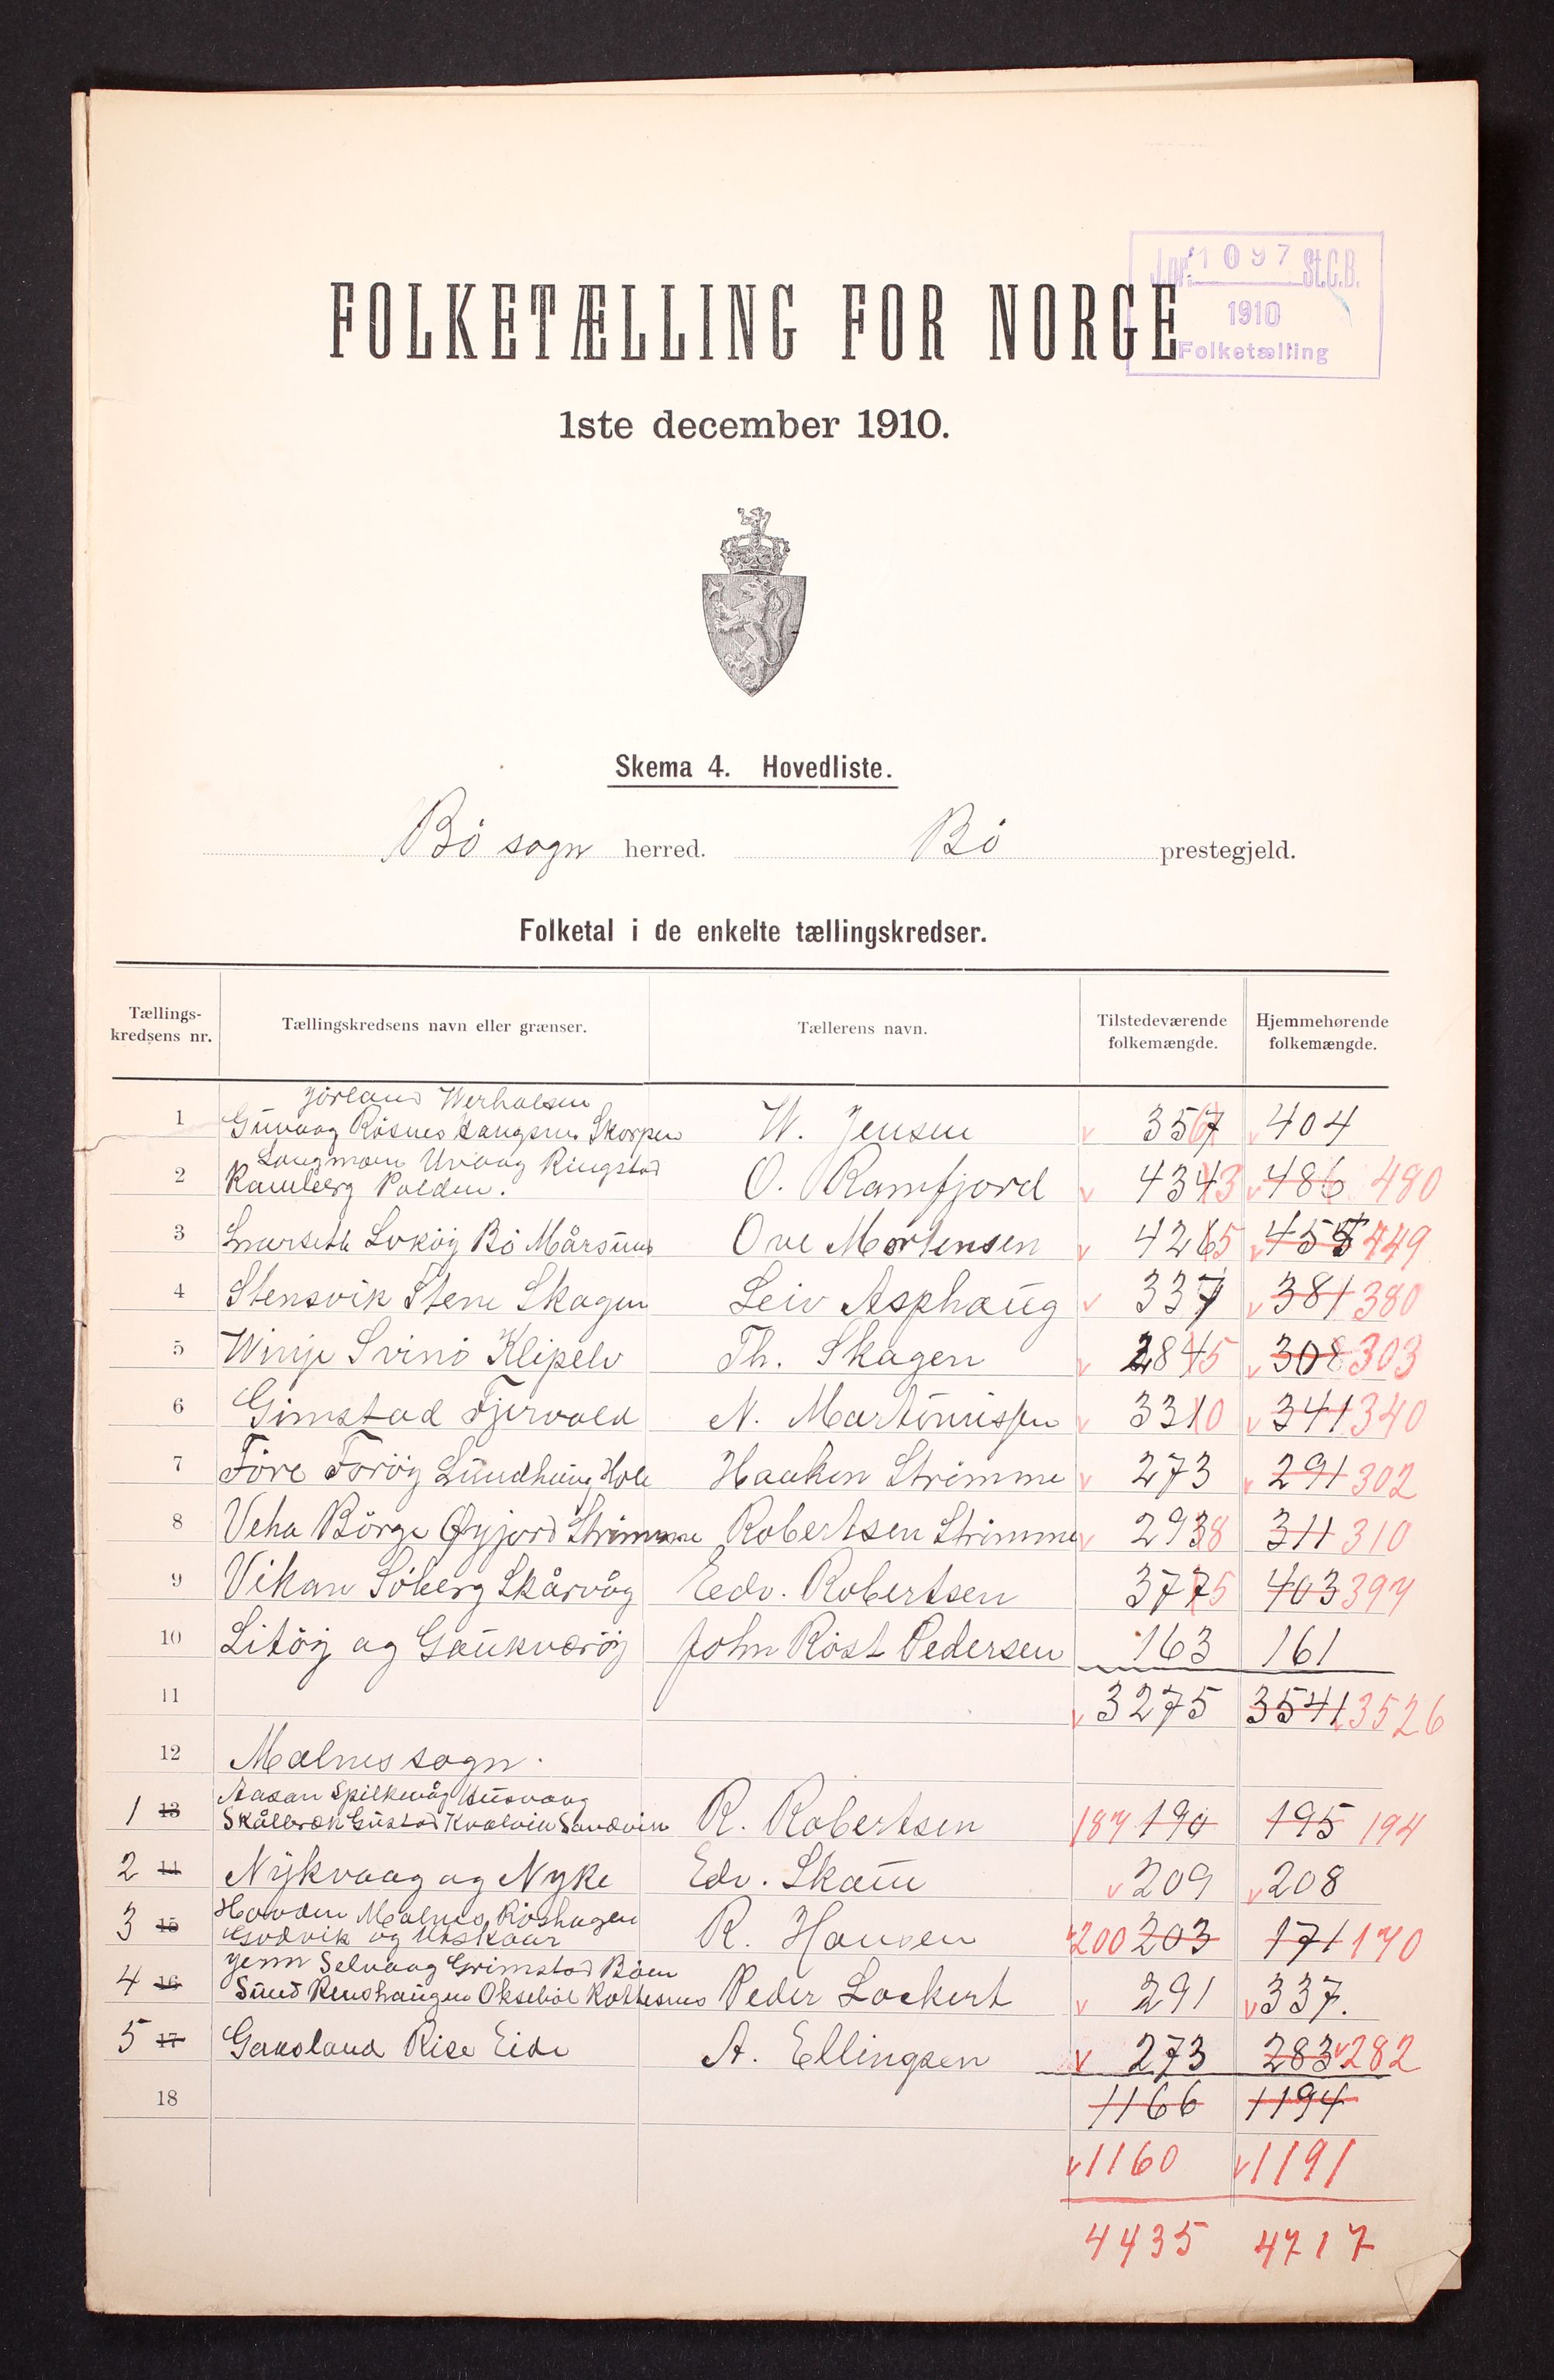 J.nr. 1097 St.C.B.
1910
Folketælling
FOLKETÆLLING FOR NORGE
1ste december 1910.
Skema 4. Hovedliste.
Bö sogn herred. Bö prestegjeld.
Folketal i de enkelte tællingskredser.
Tællings-kredsens nr. Tællingskredsens navn eller grænser. Tællerens navn. Tilstedeværende folkemængde. Hjemmehørende folkemængde.
Jörland
1 Guvaag Rösnes Skorpen W. Jensen 404
Uvaag Ringstad
2 Ramberg Polden. O. Ramfjord 434 3 486 480
3 Bö Ove Mortensen 426 5 455 449
4 Stensvik Stene Skagen Leiv Asphaug 337 381 380
5 Winje Svinö Klipelv Th. Skagen 284 5 308 303
6 Gimstad Fjervold N. 331 0 341 340
7 Före Foröy Hole Haaken Strimme 273 291 302
8 Veha Börge Øyjord Strimme Robertsen Strimme 293 8 311 310
9 Vikan Söberg Skårvåg Edv. Robertsen 377 5 403 397
10 Litöy og Gaukværöy John Röst Pedersen 163 161
11 3275 3541 3526
12 Malnes sogn.
Aasan Spilkevåg Husvaag
1 13 Skålbrek Gustad Kvalvik Sandvin R. Robertsen 187 190 195 194
2 14 Nykvaag og Nyke Edv. Skam 209 208
Hovden Malnes Röshagen
3 15 og R. Hansen 200 203 171 170
Selvaag Grimstad Böen
4 16 Sund Okseböl Peder Lockert 291 337.
5 17 Gaasland Rise Eide A. Ellingsen 273 283 282
18 1166 1194
1160 1191
4435 4717